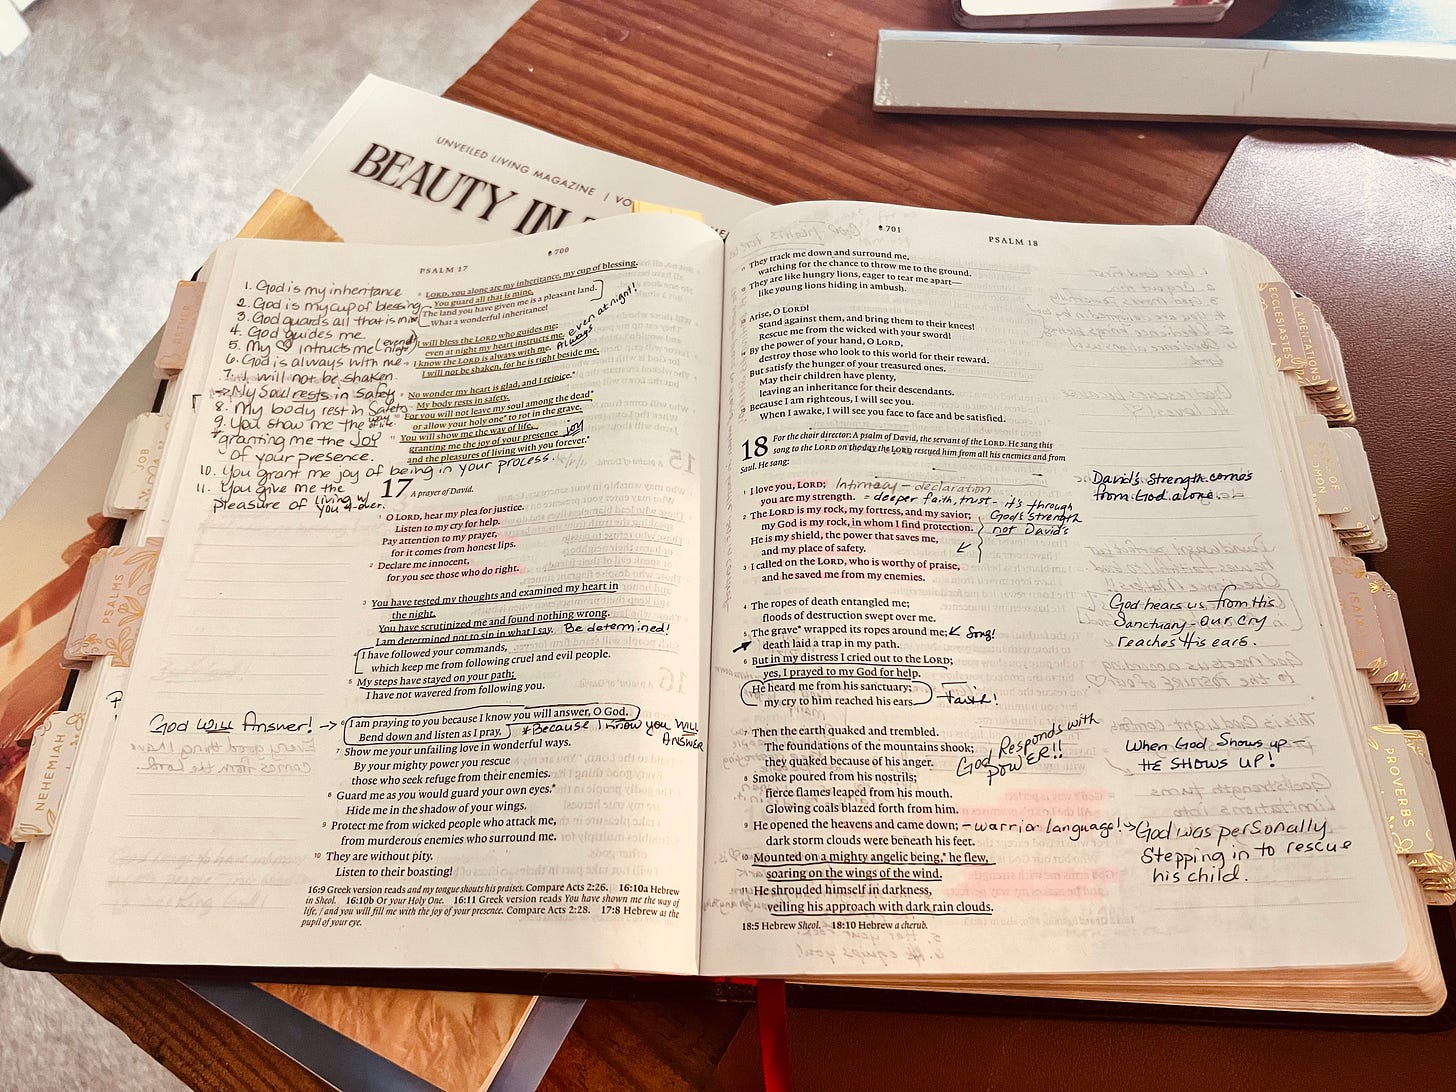 UNVEILED LIVING MAGAZINE | VO
BEAUTY IN
700
PSALM 17
1. God is my inheritance
2. God is my cup of blessing
3. God guards all that is mine
4. God guides me
5. My ♡ intructs me (even @ night)
6. God is always with me
7. I will not be shaken.
→ My Soul rests in Safety
8. My body rest in Safety
9. You show me the way of life
granting me the JOY
of your presence.
10. You grant me joy of being in your process.
11. You give me the
pleasure of living w/
you 4-ever.
5 LORD, you alone are my inheritance, my cup of blessing.
You guard all that is mine.
6 The land you have given me is a pleasant land.
What a wonderful inheritance!
7 I will bless the LORD who guides me;
even at night my heart instructs me.
even at night!
8 I know the LORD is always with me. Always
I will not be shaken, for he is right beside me.
9 No wonder my heart is glad, and I rejoice.*
My body rests in safety.
10 For you will not leave my soul among the dead*
or allow your holy one* to rot in the grave.
11 You will show me the way of life,
granting me the joy of your presence joy
and the pleasures of living with you forever.*
17 A prayer of David.
1 O LORD, hear my plea for justice.
Listen to my cry for help.
Pay attention to my prayer,
for it comes from honest lips.
2 Declare me innocent,
for you see those who do right.
3 You have tested my thoughts and examined my heart in
the night.
You have scrutinized me and found nothing wrong.
I am determined not to sin in what I say. Be determined!
4 I have followed your commands,
which keep me from following cruel and evil people.
5 My steps have stayed on your path;
I have not wavered from following you.
God WILL Answer! →
6 I am praying to you because I know you will answer, O God.
Bend down and listen as I pray. *Because I know you WILL
ANSWER
7 Show me your unfailing love in wonderful ways.
By your mighty power you rescue
those who seek refuge from their enemies.
8 Guard me as you would guard your own eyes.*
Hide me in the shadow of your wings.
9 Protect me from wicked people who attack me,
from murderous enemies who surround me.
10 They are without pity.
Listen to their boasting!
16:9 Greek version reads and my tongue shouts his praises. Compare Acts 2:26. 16:10a Hebrew
in Sheol. 16:10b Or your Holy One. 16:11 Greek version reads You have shown me the way of
life, / and you will fill me with the joy of your presence. Compare Acts 2:28. 17:8 Hebrew as the
pupil of your eye.
701
PSALM 18
11 They track me down and surround me,
watching for the chance to throw me to the ground.
12 They are like hungry lions, eager to tear me apart—
like young lions hiding in ambush.
13 Arise, O LORD!
Stand against them, and bring them to their knees!
Rescue me from the wicked with your sword!
14 By the power of your hand, O LORD,
destroy those who look to this world for their reward.
But satisfy the hunger of your treasured ones.
May their children have plenty,
leaving an inheritance for their descendants.
15 Because I am righteous, I will see you.
When I awake, I will see you face to face and be satisfied.
18 For the choir director: A psalm of David, the servant of the LORD. He sang this
song to the LORD on the day the LORD rescued him from all his enemies and from
Saul. He sang:
1 I love you, LORD; Intimacy - declaration
you are my strength. = deeper faith, trust - it's through
God's Strength
not David's
David's Strength comes
from God alone.
2 The LORD is my rock, my fortress, and my savior;
my God is my rock, in whom I find protection.
He is my shield, the power that saves me,
and my place of safety.
3 I called on the LORD, who is worthy of praise,
and he saved me from my enemies.
4 The ropes of death entangled me;
floods of destruction swept over me.
5 The grave* wrapped its ropes around me; Song!
death laid a trap in my path.
6 But in my distress I cried out to the LORD;
yes, I prayed to my God for help.
He heard me from his sanctuary;
my cry to him reached his ears.
God hears us from His
Sanctuary - our cry
reaches His ears.
7 Then the earth quaked and trembled.
The foundations of the mountains shook;
they quaked because of his anger.
God Responds with
POWER!!
When God Shows up —
HE SHOWS UP!
8 Smoke poured from his nostrils;
fierce flames leaped from his mouth.
Glowing coals blazed forth from him.
9 He opened the heavens and came down; - warrior language! → God was personally
Stepping in to rescue
his child.
dark storm clouds were beneath his feet.
10 Mounted on a mighty angelic being,* he flew,
soaring on the wings of the wind.
11 He shrouded himself in darkness,
veiling his approach with dark rain clouds.
18:5 Hebrew Sheol. 18:10 Hebrew a cherub.
ESTHER
JOB
PSALMS
NEHEMIAH
ECCLESIASTES
LAMENTATIONS
SONG OF
SOLOMON
ISAIAH
PROVERBS